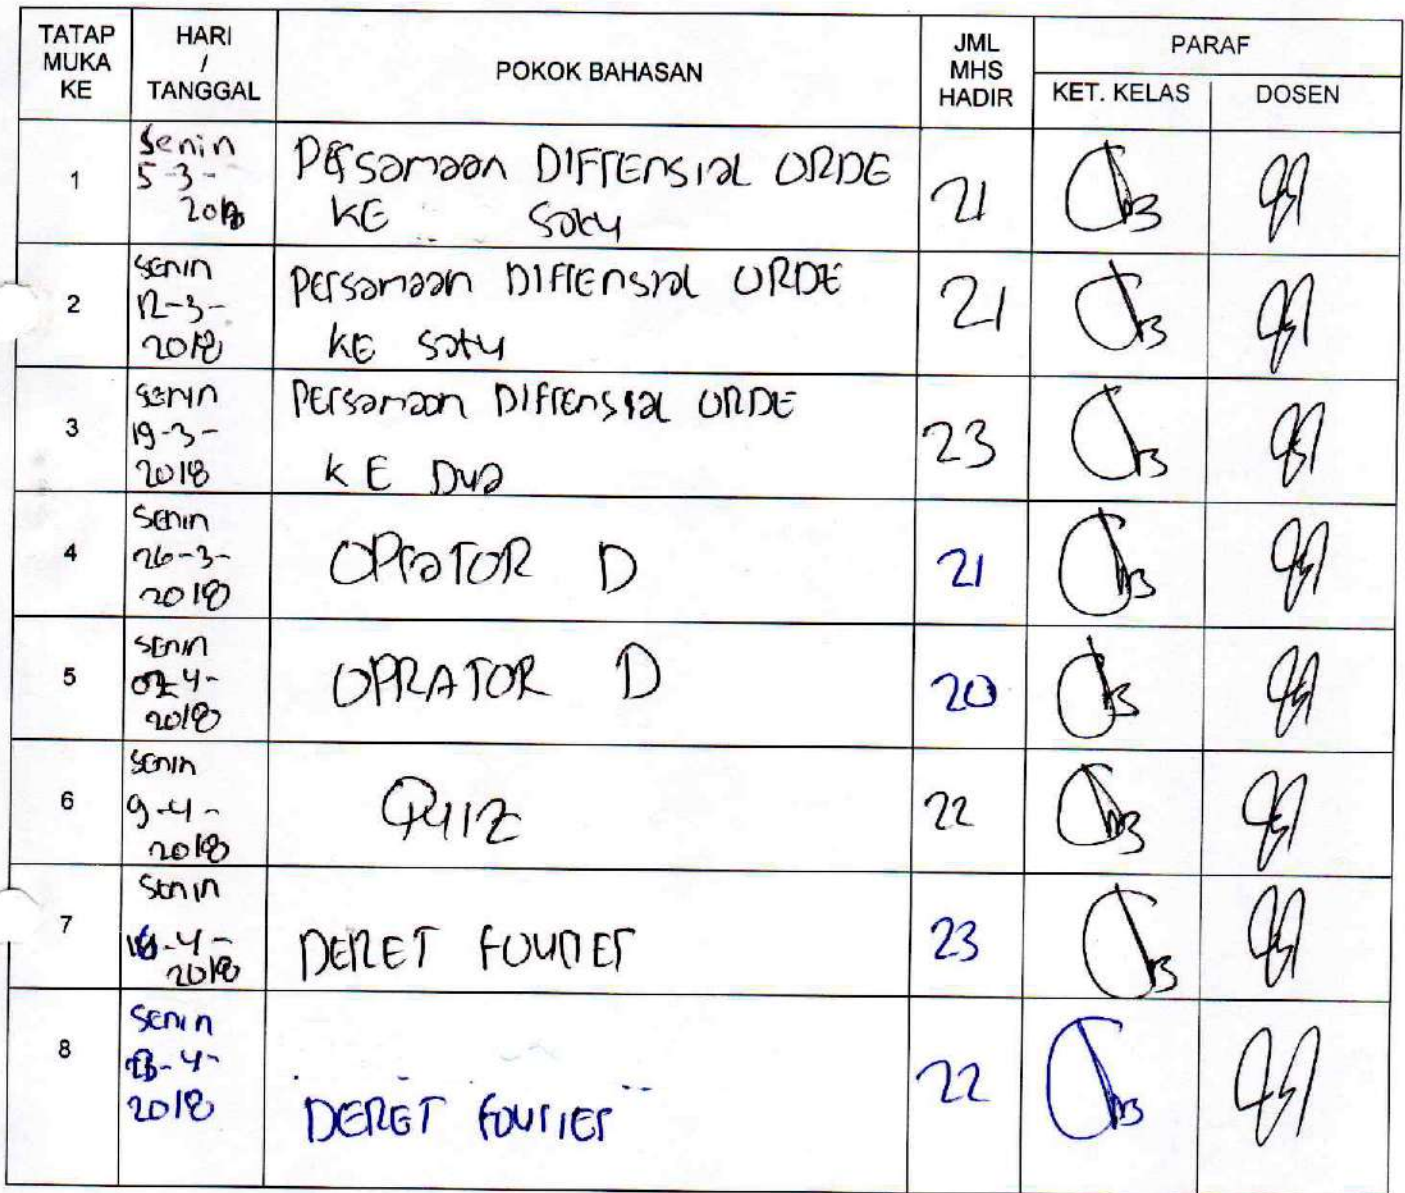 TATAP MUKA KE
HARI / TANGGAL
POKOK BAHASAN
JML MHS HADIR
PARAF
KET. KELAS
DOSEN
1
Senin
5-3-
2018
Persamaan DIFFENSIAL ORDE
KE Satu
21
2
Senin
12-3-
2018
Persamaan DIFFENSIAL ORDE
KE Satu
21
3
Senin
19-3-
2018
Persamaan DIFFENSIAL ORDE
KE Dua
23
4
Senin
26-3-
2018
OPRATOR D
21
5
Senin
02-4-
2018
OPRATOR D
20
6
Senin
9-4-
2018
QUIZ
22
7
Senin
16-4-
2018
DERET FOURIER
23
8
Senin
23-4-
2018
DERET FOURIER
22